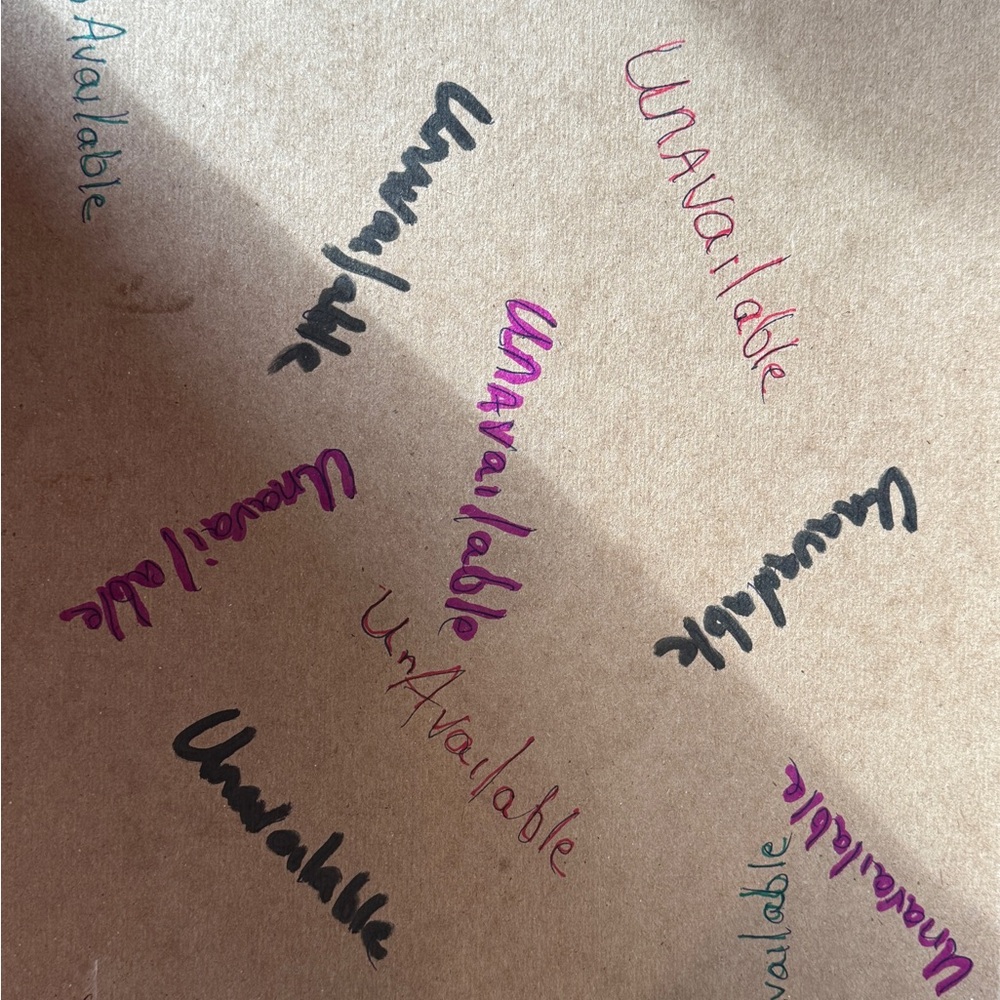 Available
Unavailable
UnAvailable
UnAvailable
Unavailable
Unavailable
UnAvailable
Unavailable
Unavailable
vailable